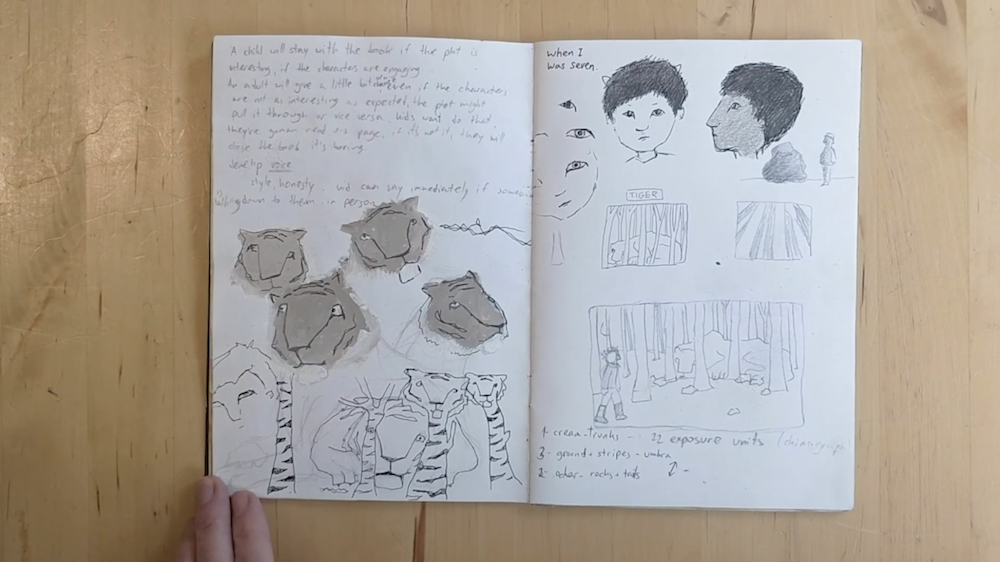 A child will stay with the book if the plot is
interesting, if the characters are engaging
An adult will give a little bit even if the characters
are not as interesting as expected, the plot might
pull it through or vice versa. kids wont do that
they're gonna read page, if it's not it, they will
close the book it's boring.
develop voice
style, honesty. kid can say immediately if
talking down to them in person
when I
was seven.
TIGER
1- cream-trunks - 22 exposure units
3- ground + stripes - umbra
2- ocher - rocks + tails